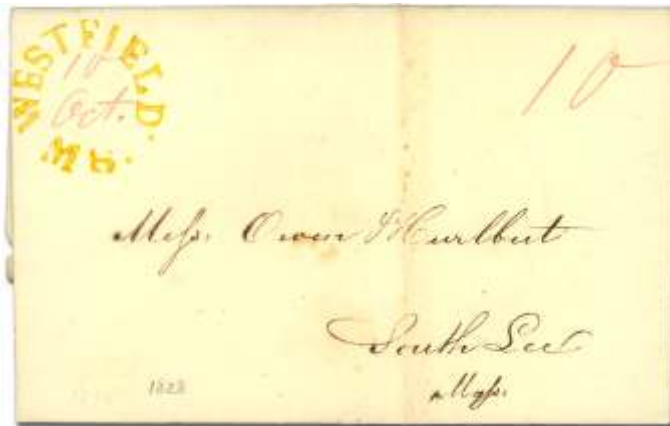 WESTFIELD. MS.
10
Oct.
10
Mess. Owen & Hurlbut
South Lee
Mass.
1828